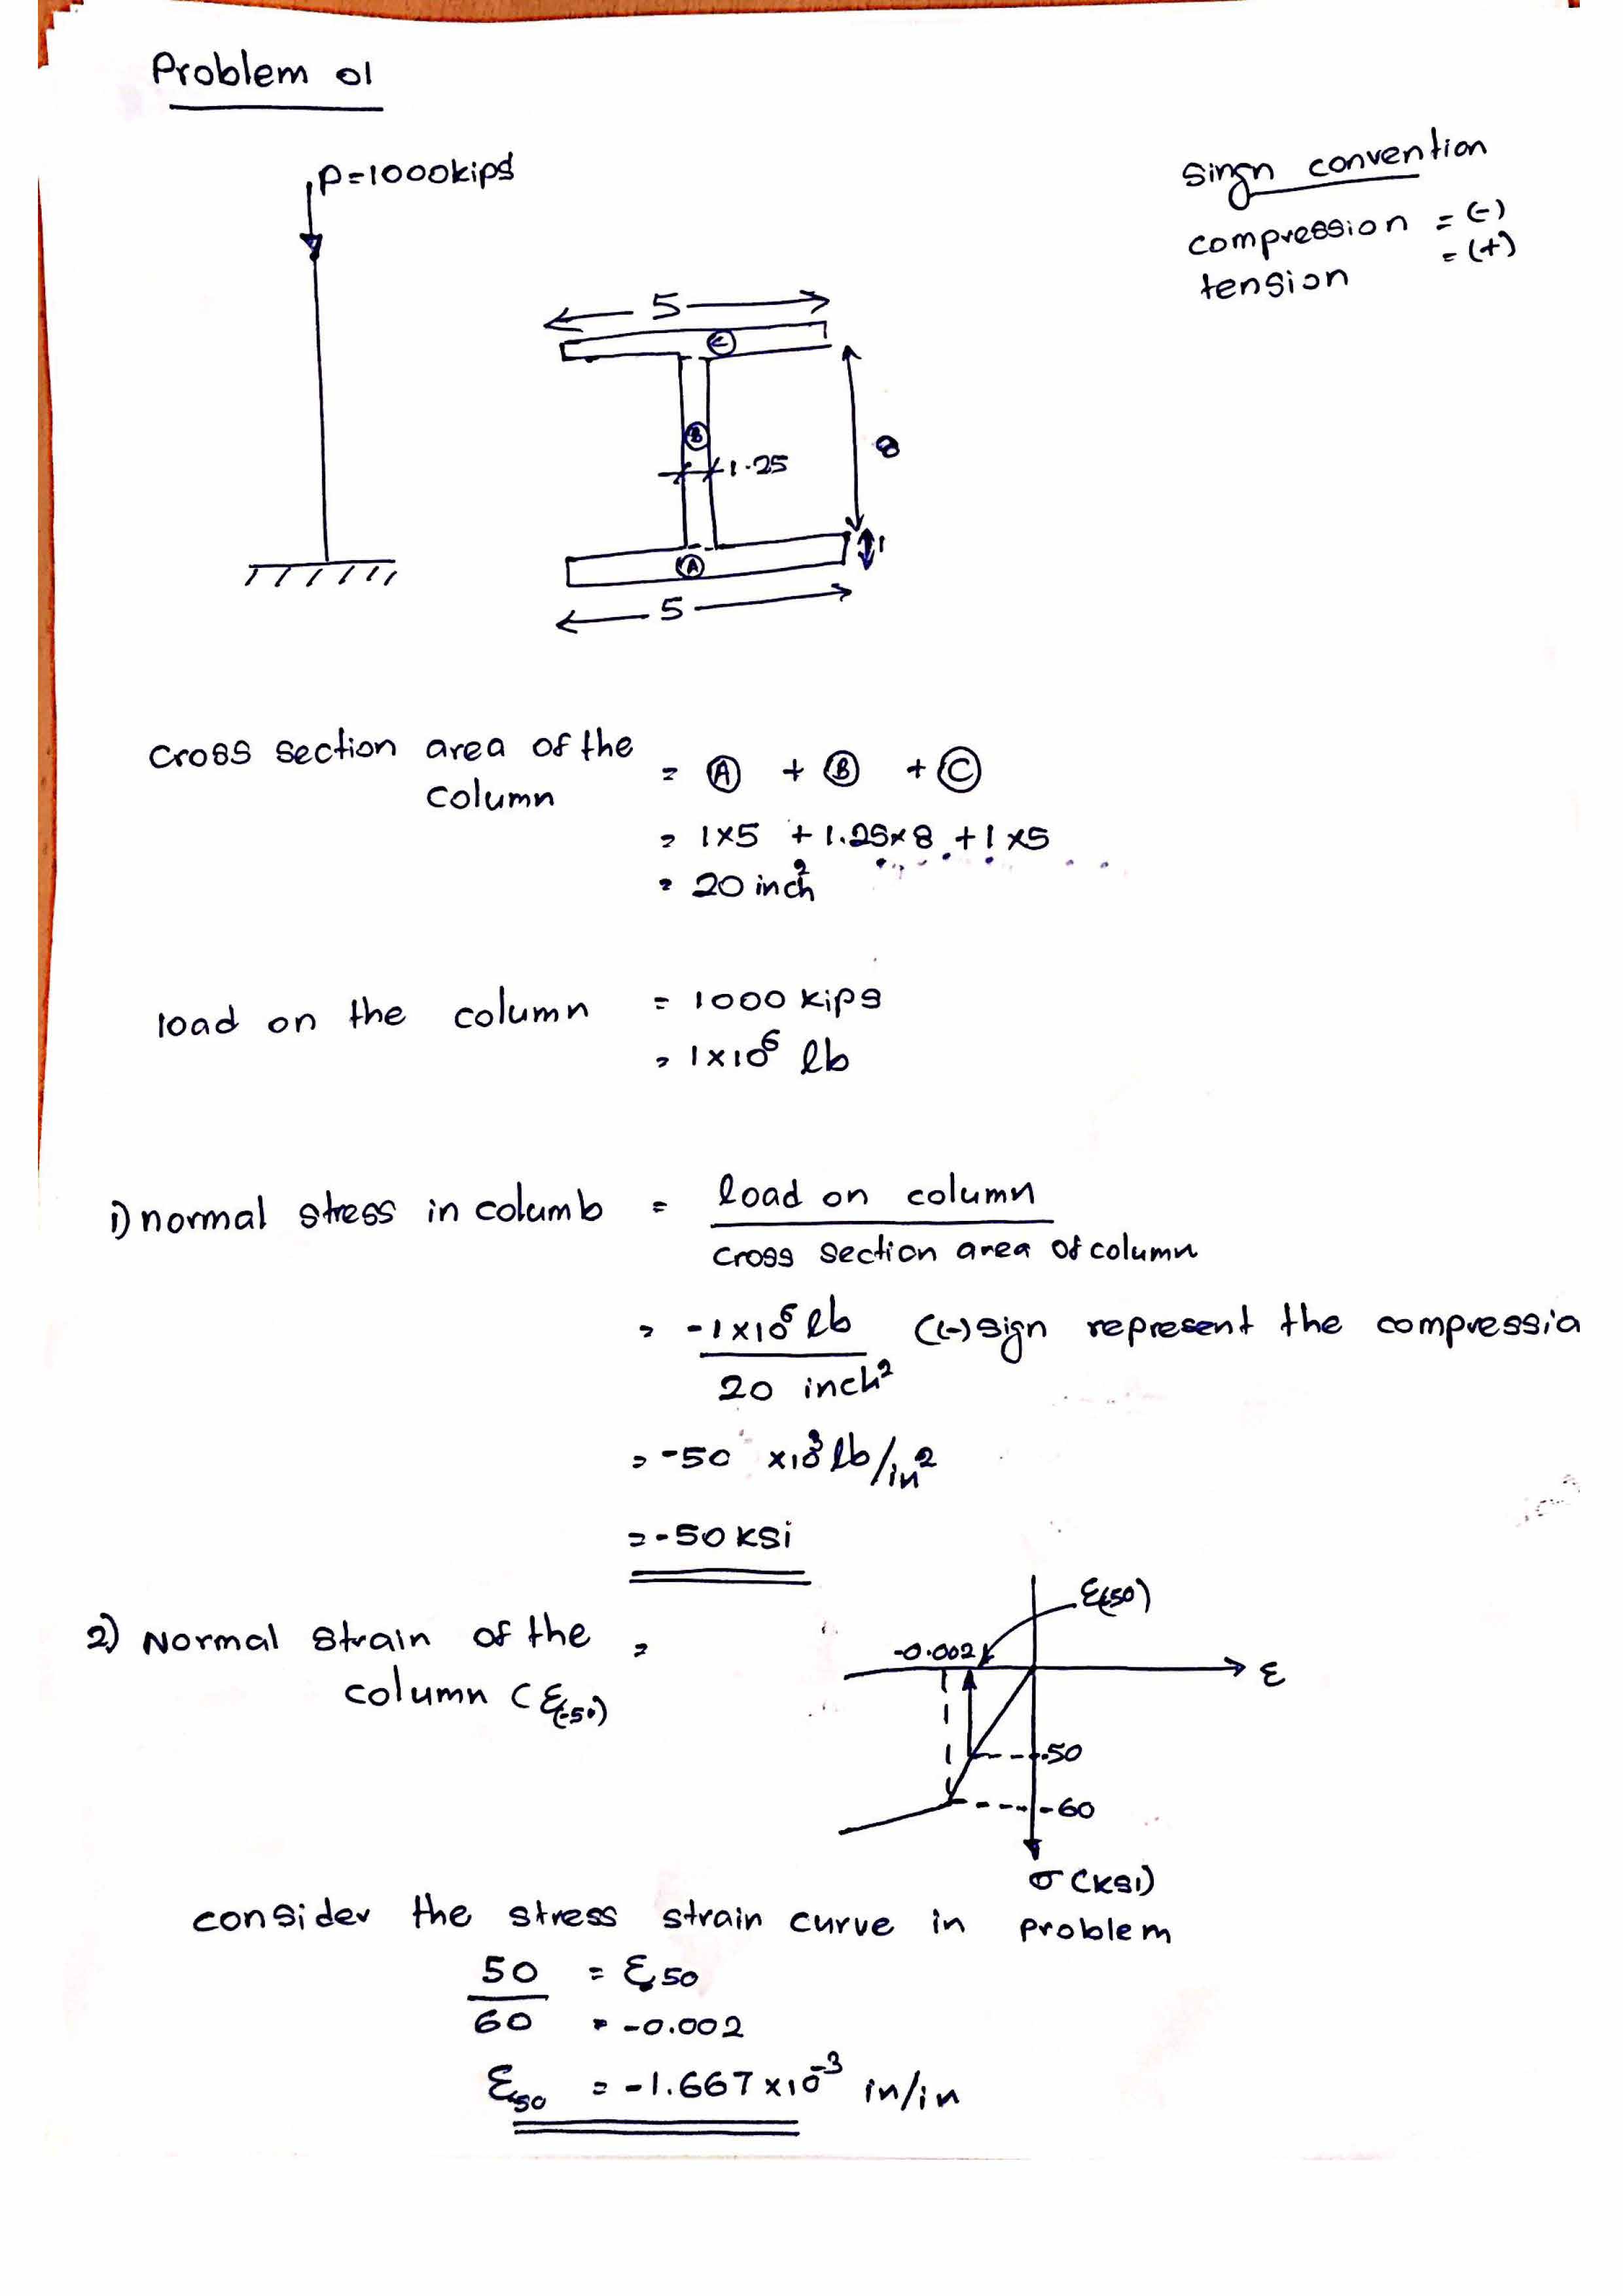 Problem 01
P=1000kips
Singn convention
compression = (-)
tension = (+)
5
C
B
1.25
8
1
A
5
cross section area of the
column
= A + B + C
= 1x5 + 1.25x8 + 1x5
= 20 inch²
load on the column = 1000 kips
= 1x10⁶ lb
1) normal stress in columb = load on column
cross section area of column
= -1x10⁶ lb ((-) sign represent the compressio
20 inch²
= -50 x10³ lb/in²
= -50 ksi
2) Normal strain of the =
column (ε(-50))
ε(50)
-0.002
ε
-50
-60
σ (KSI)
consider the stress strain curve in problem
50 = ε50
60 = -0.002
ε50 = -1.667x10⁻³ in/in